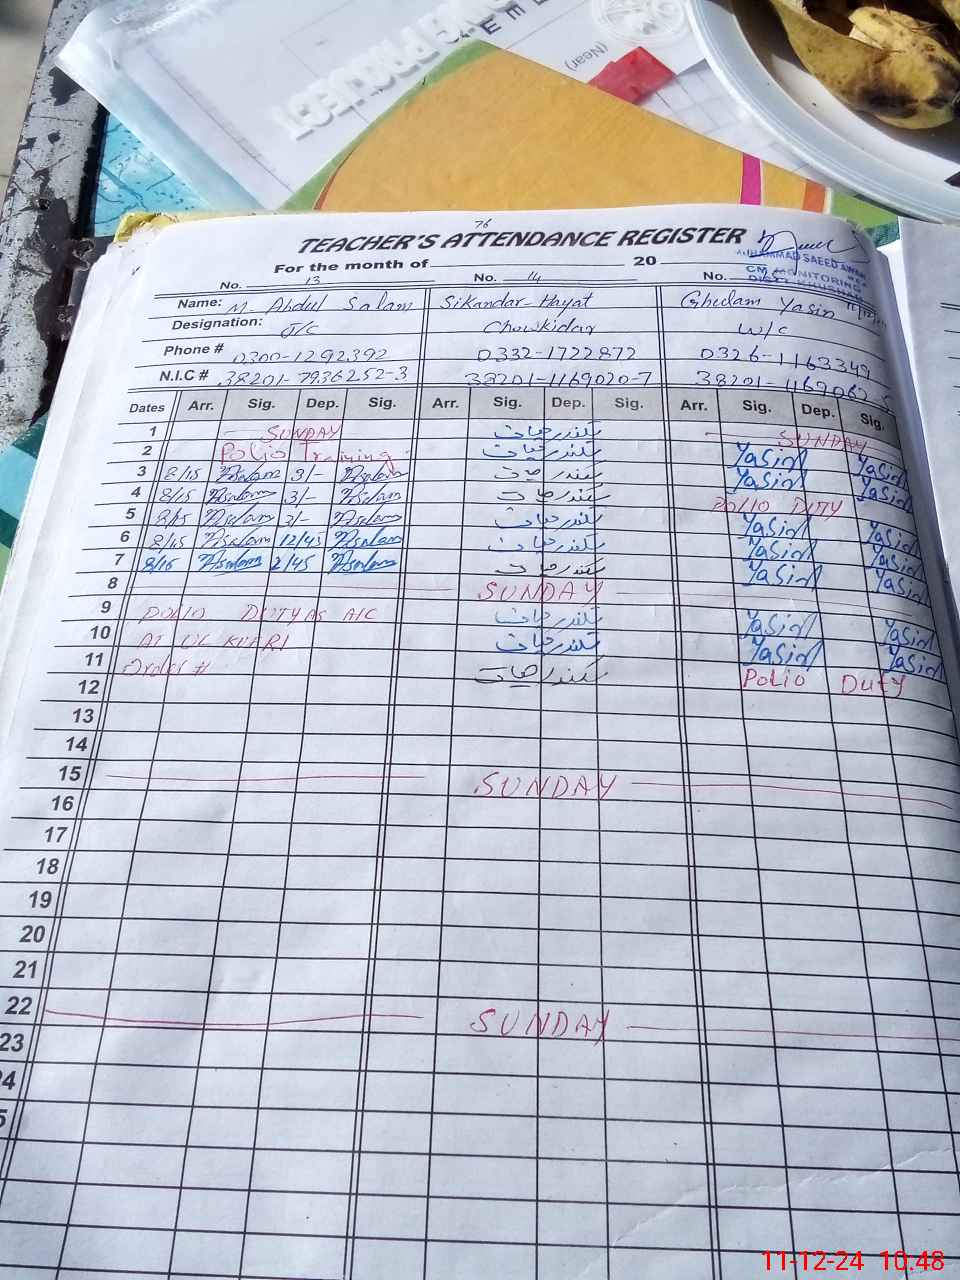 PROJECT
(Near)
76
TEACHER'S ATTENDANCE REGISTER
For the month of 20
MUHAMMAD SAEED AWAN
CM MONITORING
No. 13 No. 14 No.
Name: M. Abdul Salam Sikandar Hayat Ghulam Yasin
Designation: J/C Chowkidar W/C
Phone # 0300-1292392 0332-1722872 0326-1163349
N.I.C # 38201-7936252-3 38201-1169020-7 38201-
Dates Arr. Sig. Dep. Sig. Arr. Sig. Dep. Sig. Arr. Sig. Dep. Sig.
1 SUNDAY سکندر حیات SUNDAY
2 Polio Training سکندر حیات Yasin Yasin
3 8/15 Aslam 3/- Aslam سکندر حیات Yasin Yasin
4 8/15 Aslam 3/- Aslam سکندر حیات POLIO DUTY
5 8/15 Aslam 3/- Aslam سکندر حیات Yasin Yasin
6 8/15 Aslam 12/45 Aslam سکندر حیات Yasin Yasin
7 8/15 Aslam 2/45 Aslam سکندر حیات Yasin Yasin
8 SUNDAY
9 POLIO DUTY AS AIC سکندر حیات Yasin Yasin
10 AT UC KUFRI سکندر حیات Yasin Yasin
11 Order # سکندر حیات Polio Duty
12
13
14
15 SUNDAY
16
17
18
19
20
21
22 SUNDAY
23
11-12-24 10:48